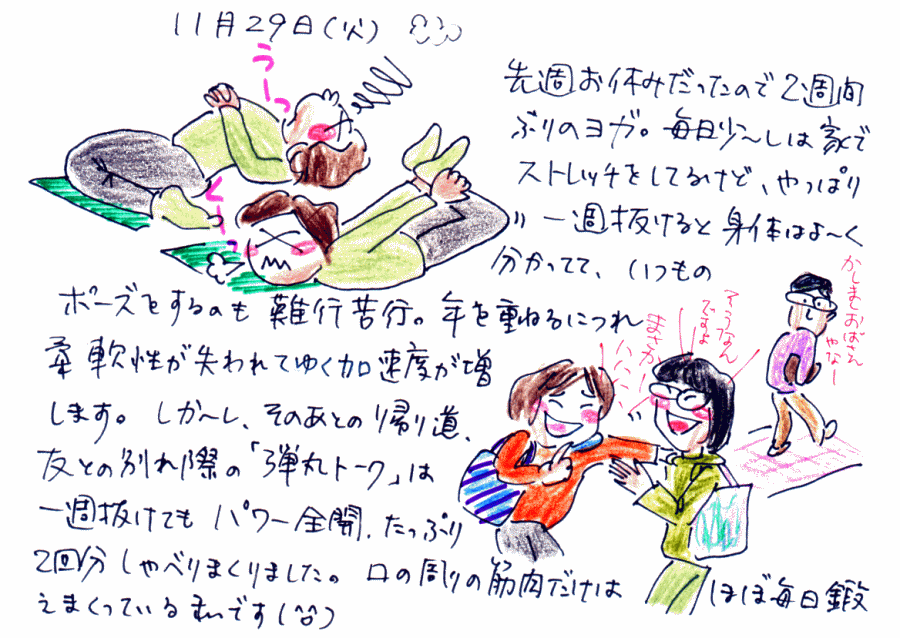 11月29日(火)
うーっ
くーっ
先週お休みだったので2週間
ぶりのヨガ。毎日少〜しは家で
ストレッチをしてるけど、やっぱり
一週抜けると身体はよ〜く
分かってて、いつもの
ポーズをするのも難行苦行。年を重ねるにつれ
柔軟性が失われてゆく加速度が増
します。しか〜し、そのあとの帰り道、
友との別れ際の「弾丸トーク」は
一週抜けても パワー全開、たっぷり
2回分しゃべりまくりました。口の周りの筋肉だけは ほぼ毎日鍛
えまくっている私です(^o^)
まさかー
ハハハ
そうなん
ですよ
かしましおばさん
やなー